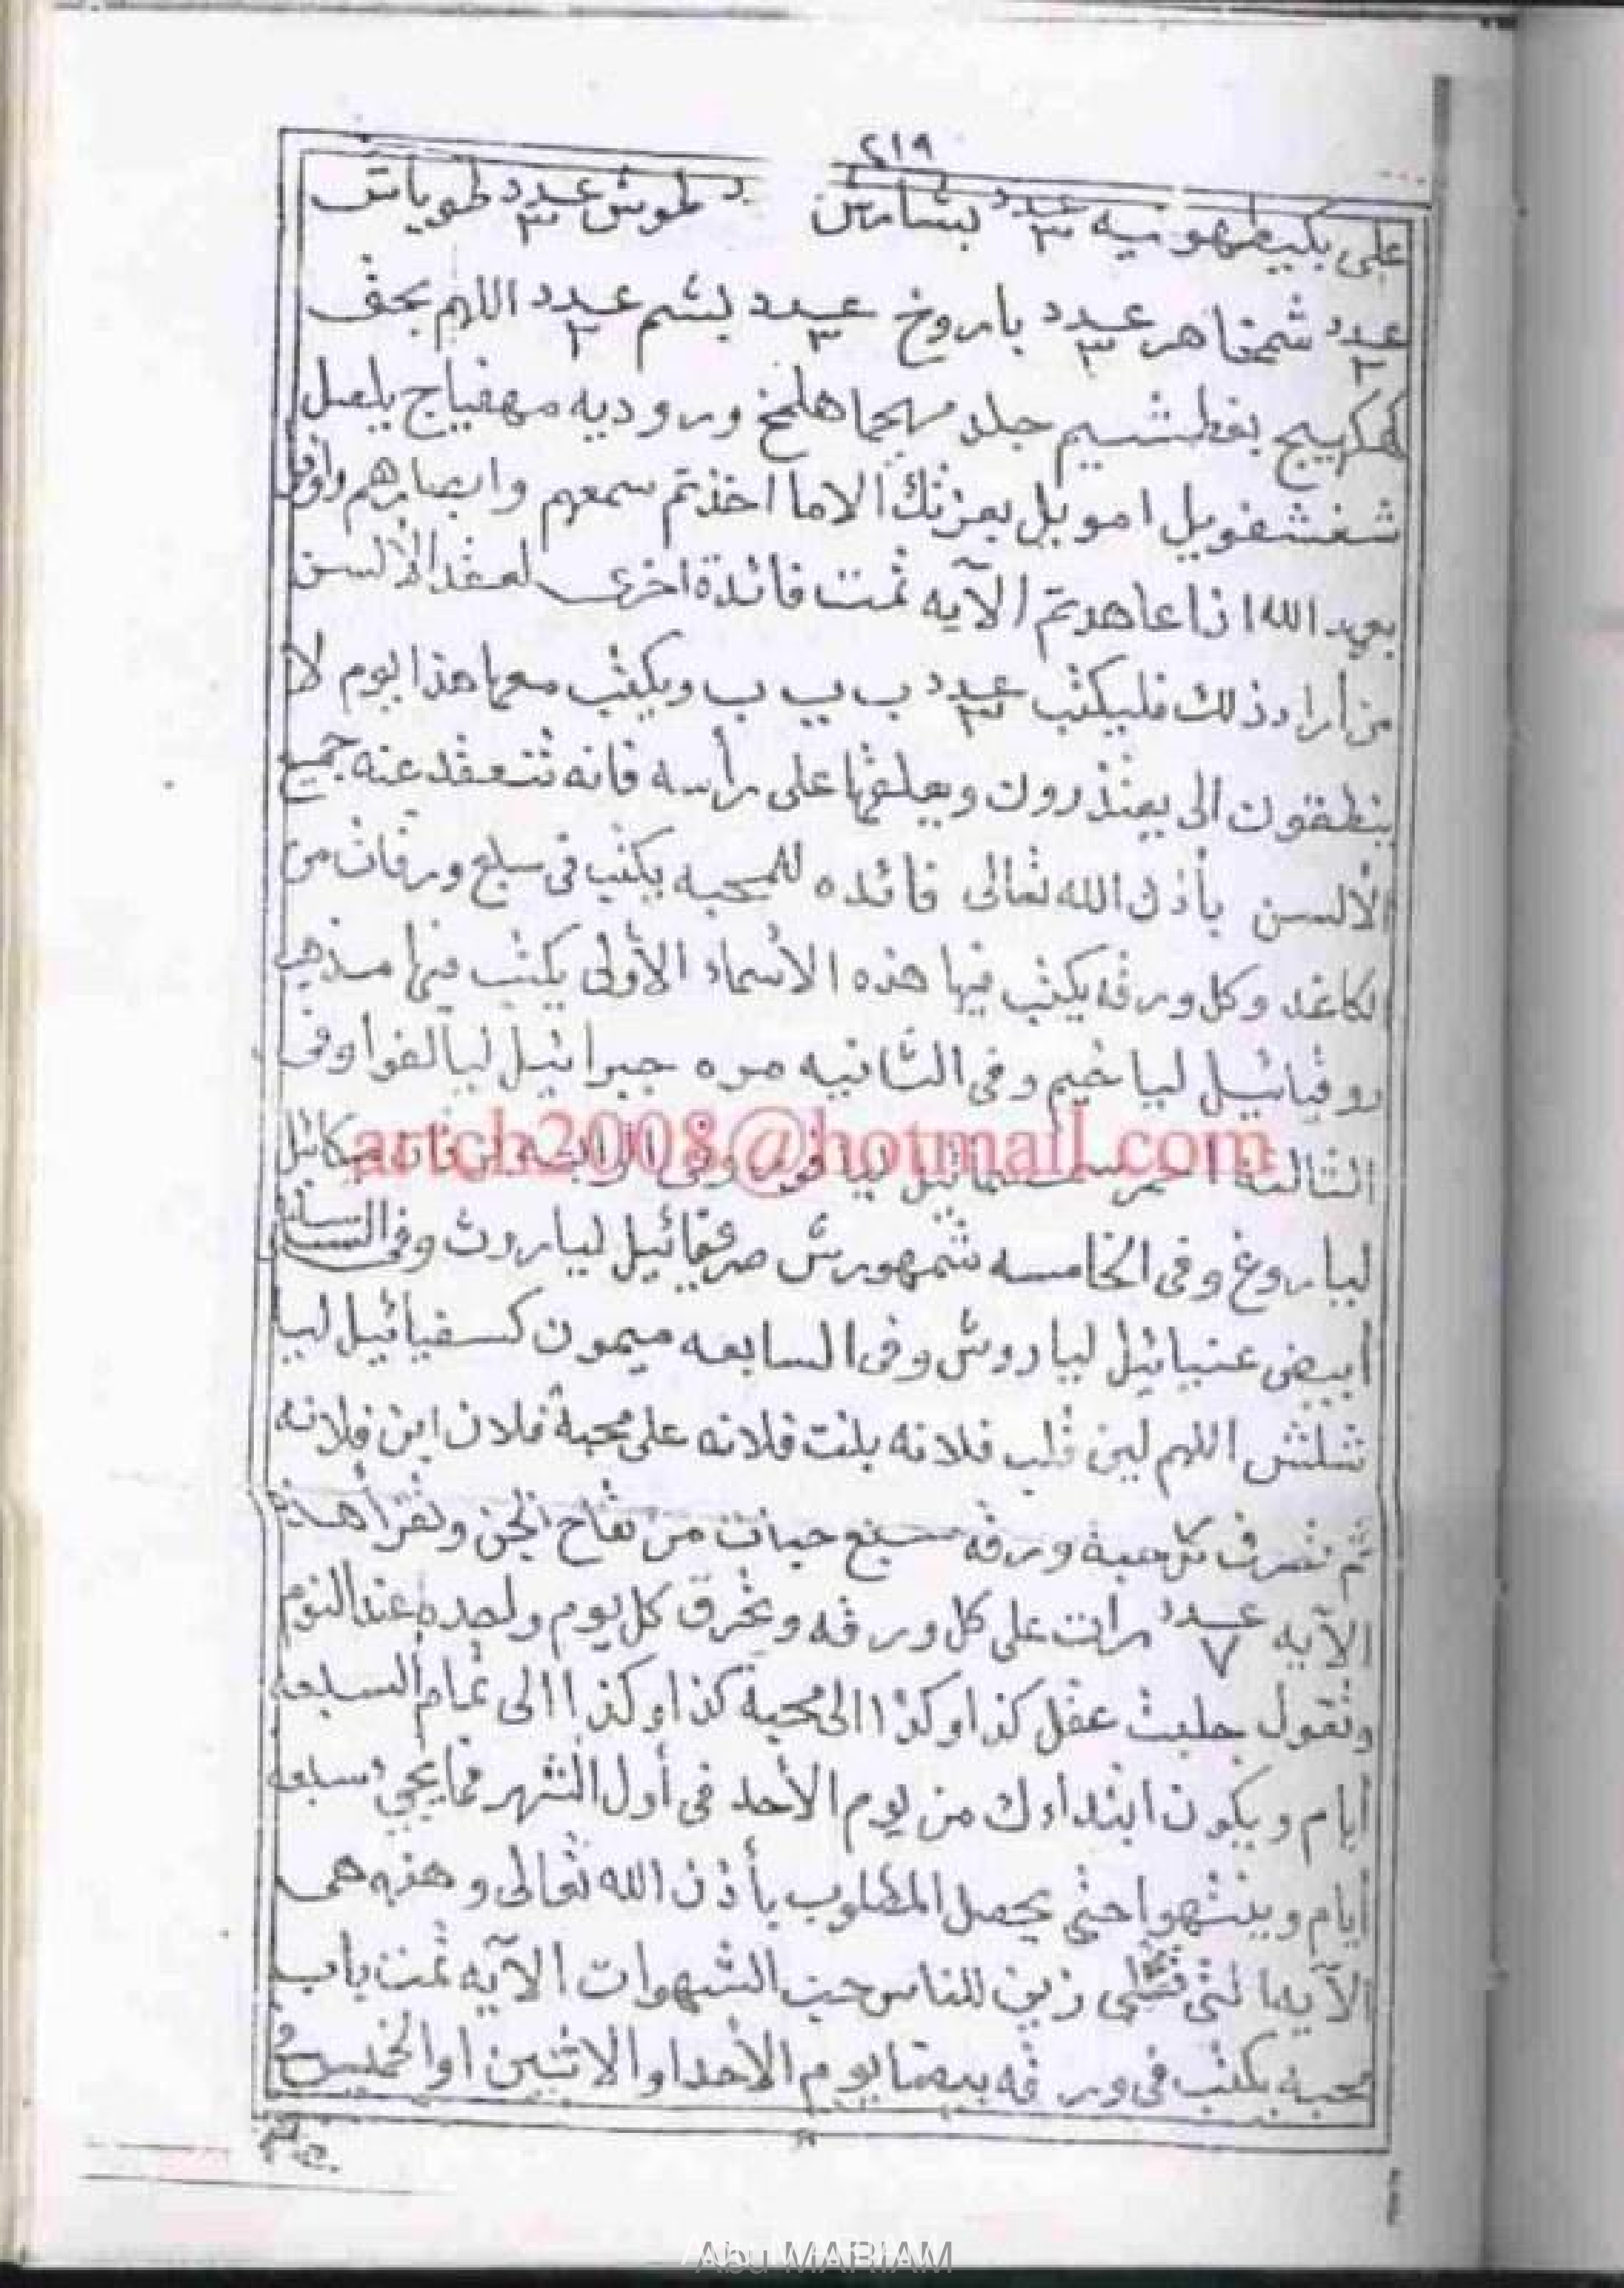 ٢١٩
على بكيطهونيه عدد ٣ بشارش طوش عدد ٣ طوياتش
عدد ٣ شمخاهر عدد ٣ باروخ عدد ٣ بشم عدد ٣ اللهم بحق
كهكهيج بغطشيم جلد مهجما هلمخ وروديه مهفياج يلصل
شغشغويل امويل بعزتك الا ما اخذتم سمعهم وابصارهم واوفو
بعهد الله اذا عاهدتم الآيه تمت فائدة اخرى لعقد الألسن
من أراد ذلك فليكتب عدد ٣ ب ب ب ويكتب معها هذا يوم لا
ينطقون الى يعتذرون ويعلقها على رأسه فانه تتعقد عنه جميع
الألسن بأذن الله تعالى فائده للمحبه يكتب فى سبع ورقات من
لكاغد وكل ورقه يكتب فيها هذه الأسماء الأولى يكتب فيها مذهب
روقيائيل ليا خيم وفى الثانيه مره جبرائيل ليالغوا وفى
الثالثه احمر سمسمائيل ليا وفى الرابعه برقان ميكائيل
لياروغ وفى الخامسه شمهورش صرفيائيل لياروث وفى السادسه
ابيض عنيائيل لياروش وفى السابعه ميمون كسفيائيل ليا
شلشش اللهم لين قلب فلانه بنت فلانه على محبة فلان ابن فلانه
ثم ورقه سبع حبات من تفاح الجن وتقرأ هذه
لآيه عدد ٧ مرات على كل ورقه وتحرق كل يوم ولحده عند النوم
وتقول جلبت عقل كذا وكذا الى محبة كذا وكذا الى تمام السبعه
ايام ويكون ابتداءك من يوم الأحد فى أول الشهر فما يجي سبعه
ايام وينتهوا حتى يحصل المطلوب بأذن الله تعالى وهذه هى
الآيه التى تتلى زين للناس حب الشهوات الآيه تمت باب
محبه يكتب فى ورقه بيضا يوم الأحد او الاثنين او الخميس
artch2008@hotmail.com
Abu MARIAM